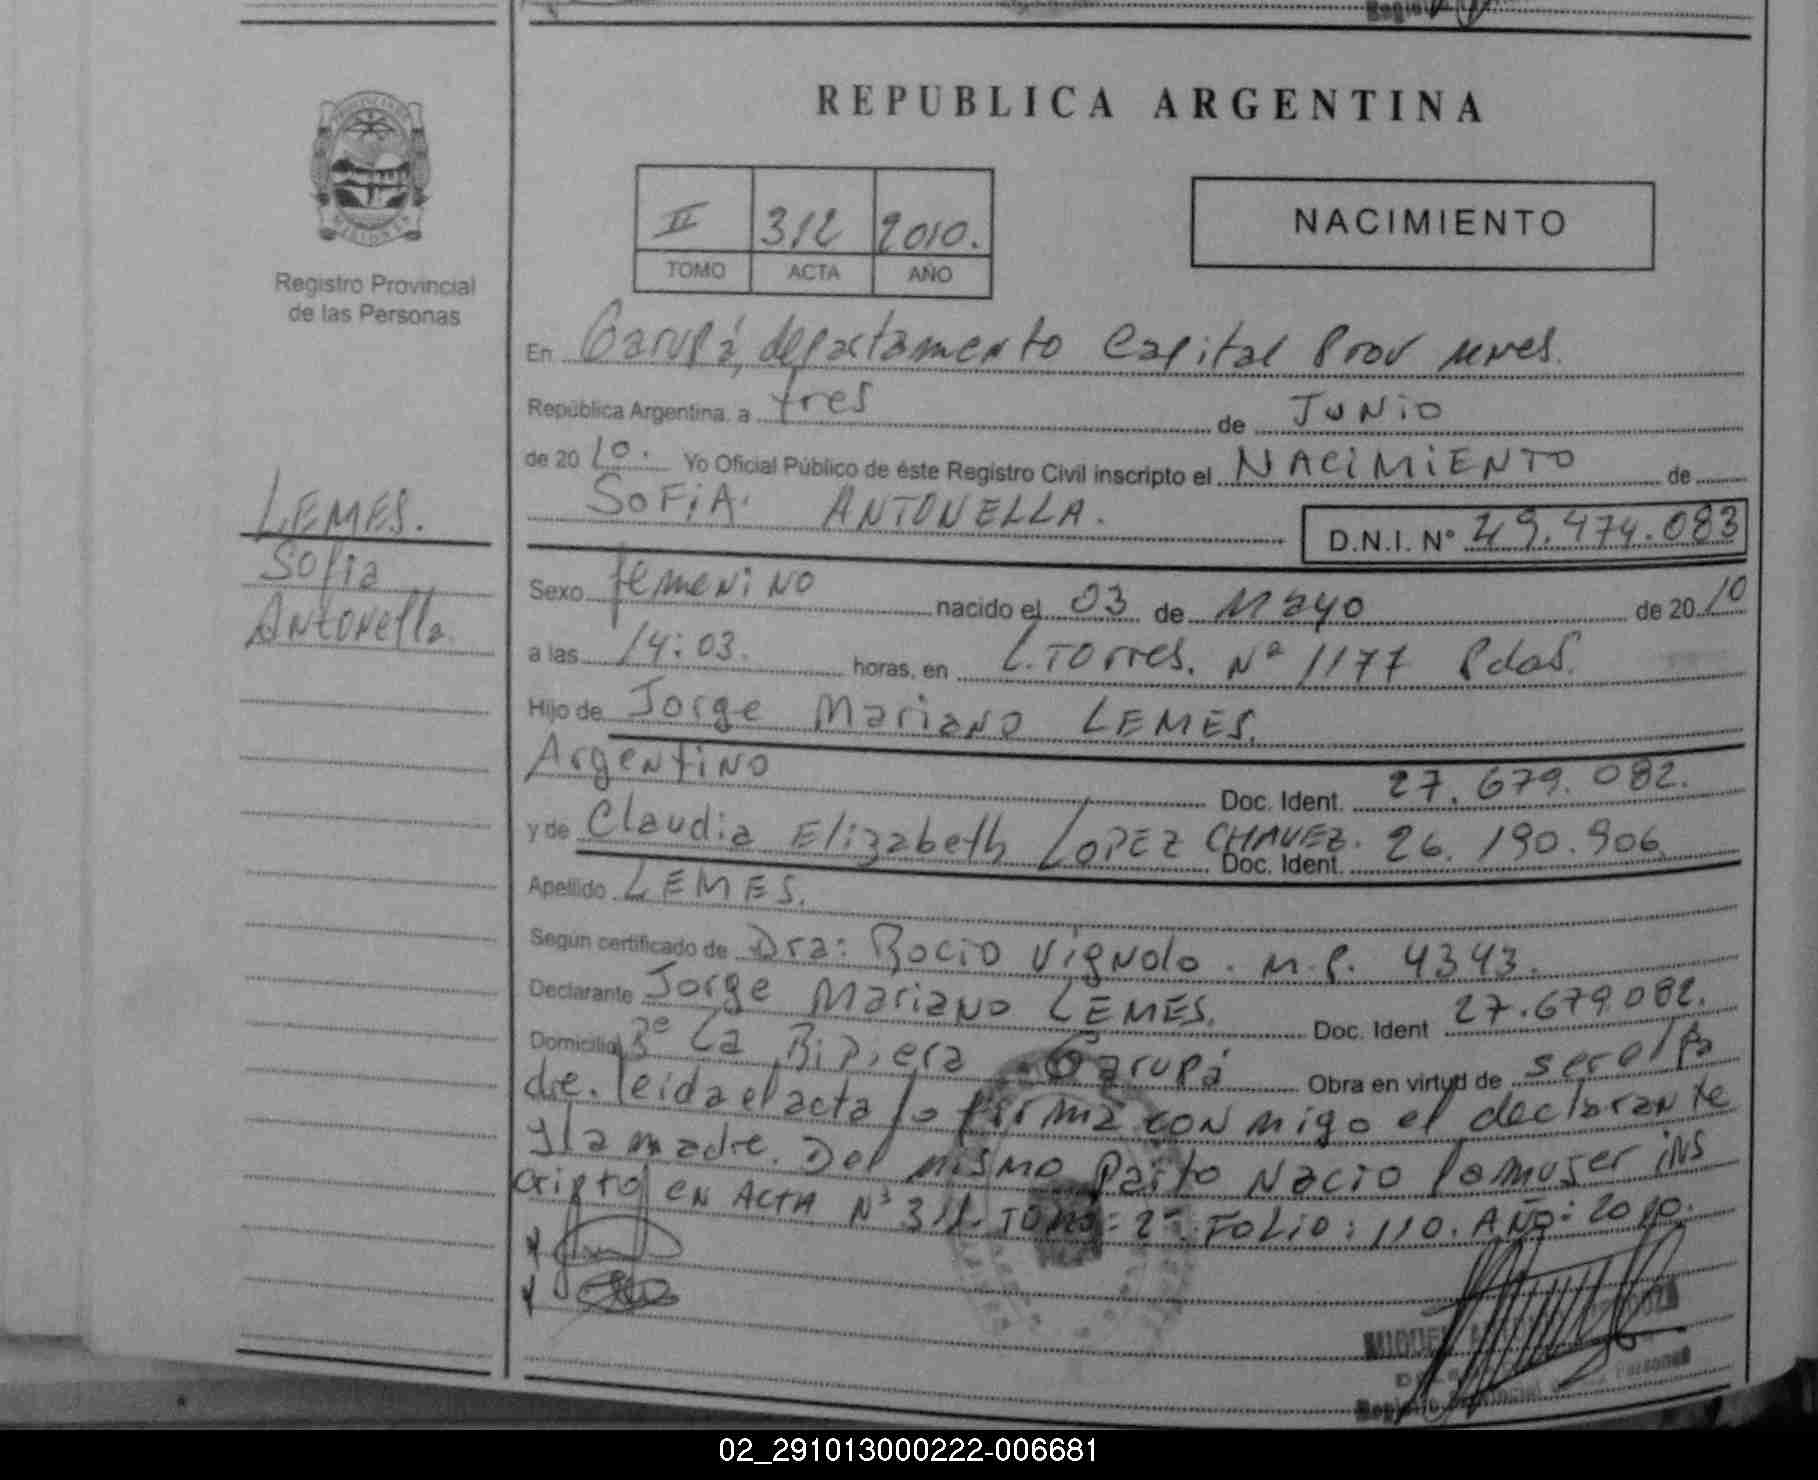 REPUBLICA ARGENTINA
PROVINCIA DE
MISIONES
Registro Provincial
de las Personas
II 312 2010.
TOMO ACTA AÑO
NACIMIENTO
En Garupá, departamento Capital Prov mnes.
República Argentina, a tres de JUNiO
de 20 10. Yo Oficial Público de éste Registro Civil inscripto el NACiMiENTO de
SOFiA. ANTONELLA.
D.N.I. N° 49.474.083
LEMES.
Sofia
Antonella.
Sexo femeniNO nacido el 03 de Mayo de 20 10
a las 14:03. horas, en L. Torres. Nº 1177 Pdas.
Hijo de Jorge MariaNO LEMES.
ArgentiNO Doc. Ident. 27.679.082.
y de Claudia Elizabeth LOPEZ CHAVEZ. Doc. Ident. 26.190.906
Apellido LEMES.
Según certificado de Dra: Rocio VigNolo. M.P. 4343.
Declarante Jorge MariaNO LEMES. Doc. Ident 27.679.082.
Domicilio Bº La Garupá Obra en virtud de ser el Pa
dre. leida el acta la firma conmigo el declarante
y la madre. Del mismo Parto Nacio la mujer ins
cripto en ACTA Nº 311. TOMO: 2º. FOLIO: 110. AÑO: 2010.
MIGUEL
Registro Provincial Personas
02_291013000222-006681